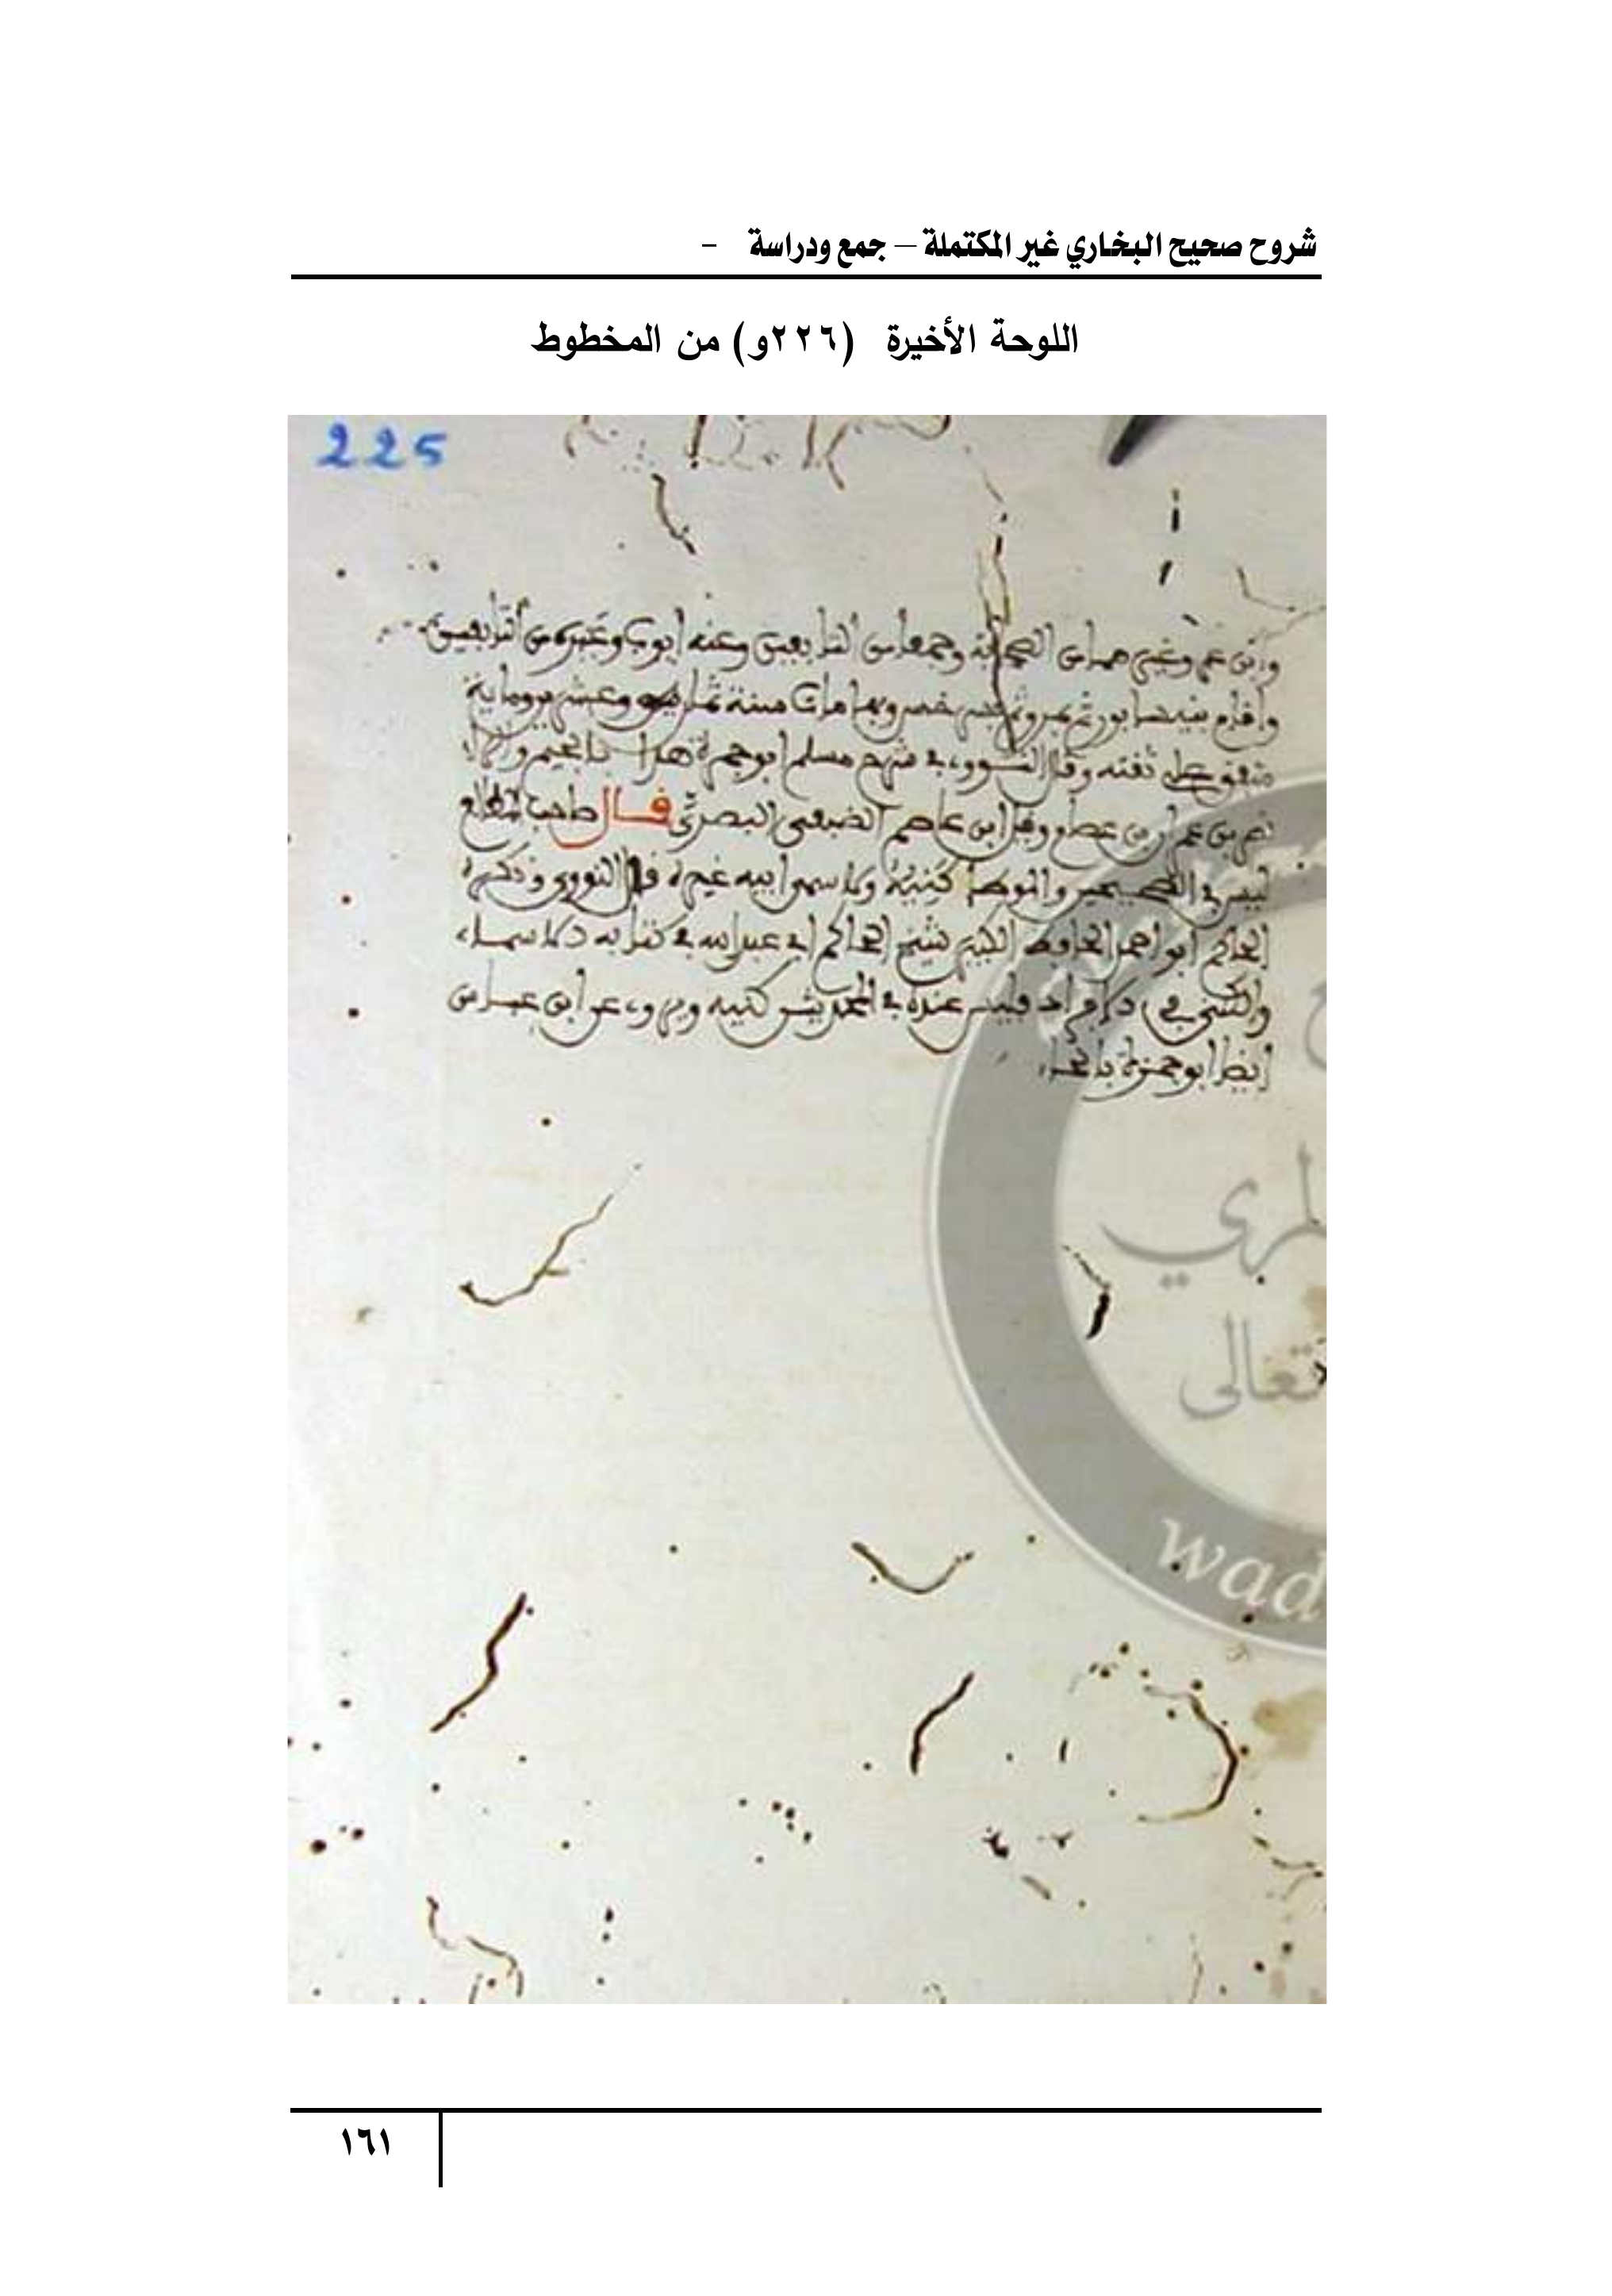 شروح صحيح البخاري غير المكتملة – جمع ودراسة -
اللوحة الأخيرة (٢٢٦و) من المخطوط
225
وابن عمر وغيرهما من الصحابة وجمعا من التابعين وعنه أيوب وغيره من التابعين
واقام بنيسابور ثم بمرو ثم بسرخس وبها مات سنة ثمان وعشرين ومائة
متفق على ثقته وقال النووي في شرح مسلم ابو جمرة هذا بالجيم والراء
نصر بن عمران بن عصام وقيل ابن عاصم الضبعي البصري قال صاحب المطالع
ليس في الصحيحين والموطأ كنية ولا اسم ابيه غيره قال النووي وذكره
الحاكم ابو احمد الحافظ الكبير شيخ الحاكم ابي عبد الله في كتابه الاسماء
والكنى في الافراد فليس عنده في المحدثين كنيه ويروي عن ابن عباس
ايضا ابو حمزة بالحاء
لمري
تعالى
wad
١٦١